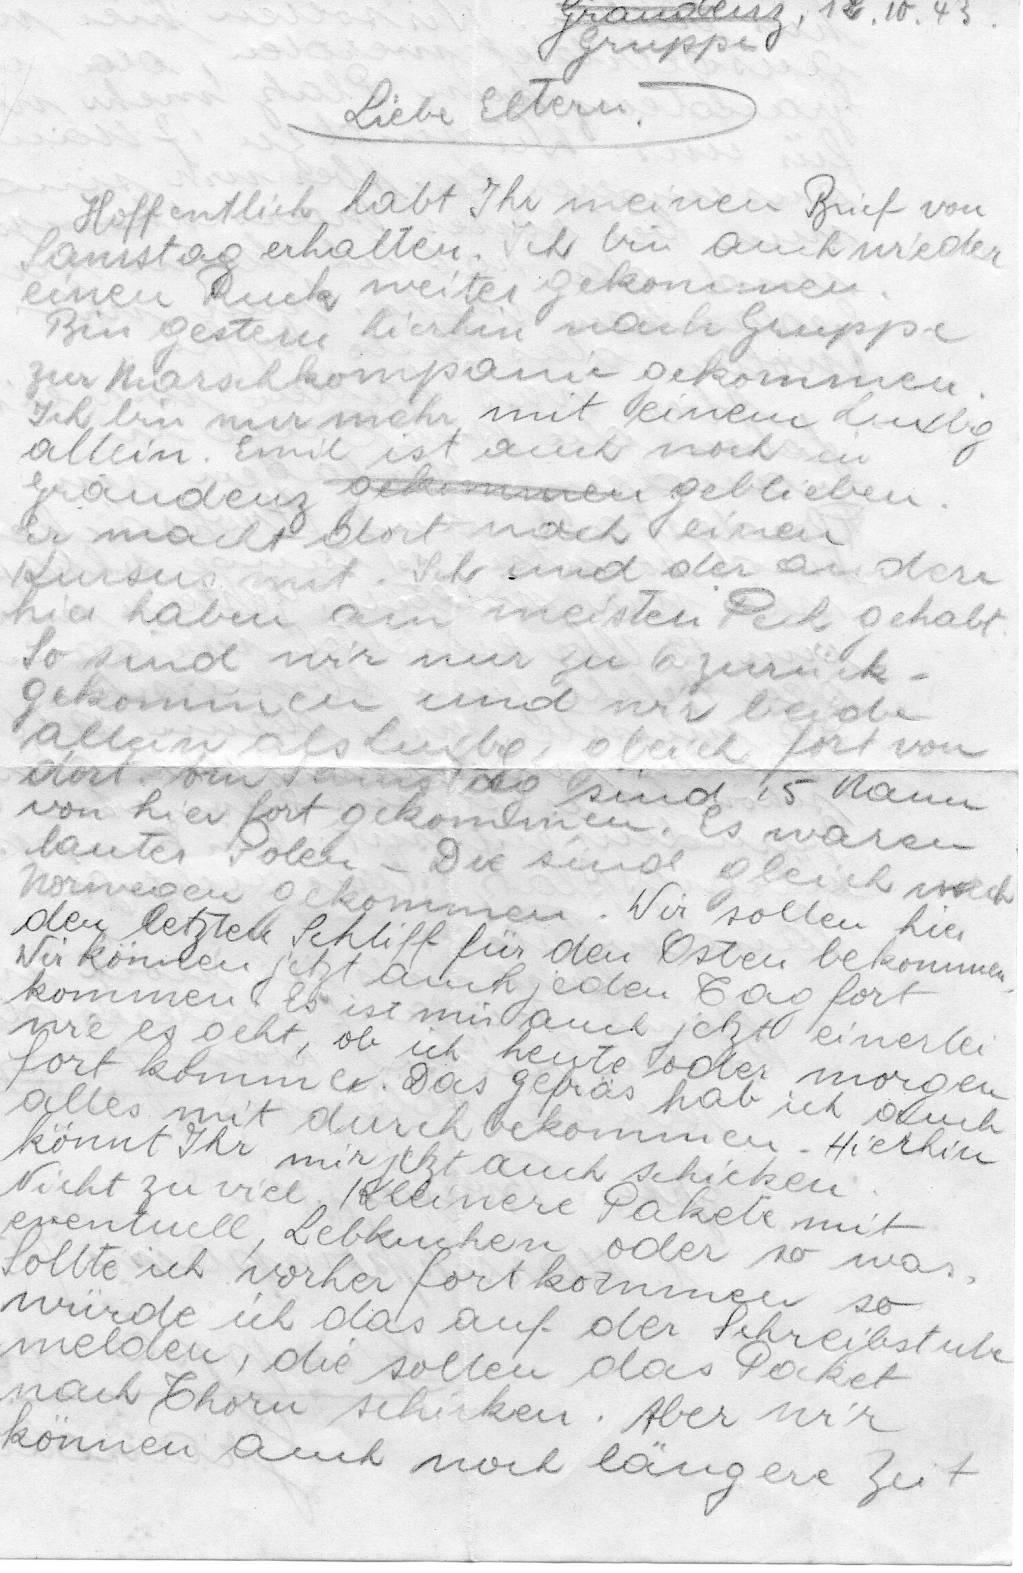 Graudenz, 12.10.43.
Gruppe
Liebe Eltern.
Hoffentlich habt Ihr meinen Brief von
Samstag erhalten. Ich bin auch wieder
einen Ruck weiter gekommen.
Bin gestern hierhin nach Gruppe
zur Marschkompanie gekommen.
Ich bin nur mehr mit einem Luxbg
allein. Emil ist auch noch in
Graudenz gekommen geblieben.
Er macht dort noch einen
Kursus mit. Ich und der andere
hier haben am meisten Pech gehabt.
So sind wir nur zu 6 zurück-
gekommen und wir beide
allein als Luxbg. gleich fort von
dort. Am Samstag sind 15 Mann
von hier fort gekommen. Es waren
lauter Polen - Die sind gleich nach
Norwegen gekommen. Wir sollen hier
den letzten Schliff für den Osten bekommen.
Wir können jetzt auch jeden Tag fort
kommen. Es ist mir auch jetzt einerlei
wie es geht, ob ich heute oder morgen
fort komme. Das gefräs hab ich auch
alles mit durchbekommen. Hierhin
könnt Ihr mir jetzt auch schicken.
Nicht zu viel. Kleinere Pakete mit
eventuell, Lebkuchen oder so was.
Sollte ich vorher fortkommen so
würde ich das auf der Schreibstube
melden, die sollen das Paket
nach Thorn schicken. Aber wir
können auch noch längere Zeit